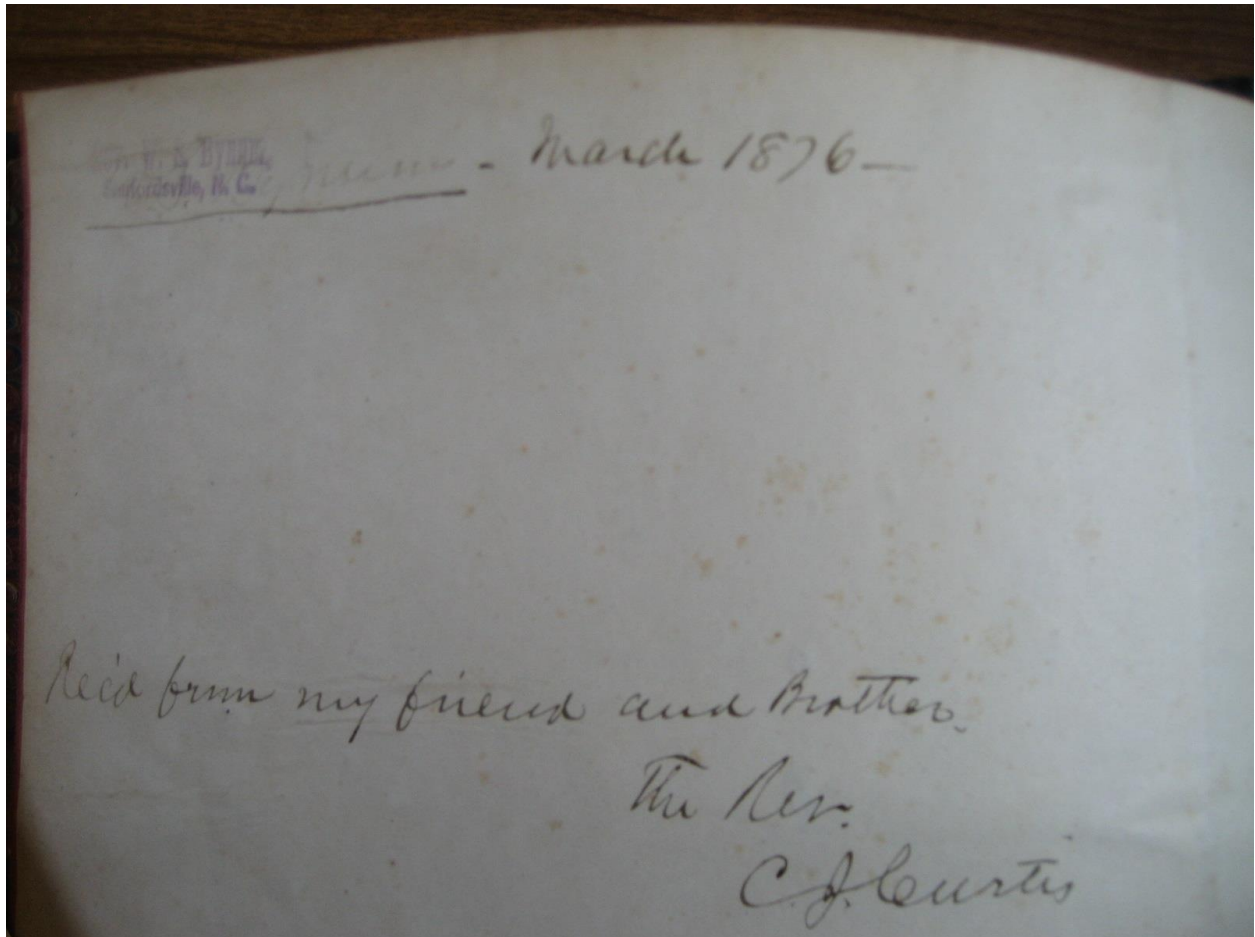 BYRNE,
N. C.
- March 1876 -
Rec'd from my friend and Brother.
The Rev.
C. J. Curtis